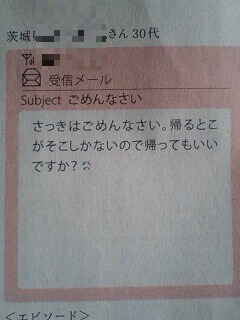 茨城 さん 30代
受信メール
Subject ごめんなさい
さっきはごめんなさい。帰るとこ
がそこしかないので帰ってもいい
ですか?
＜エピソード＞